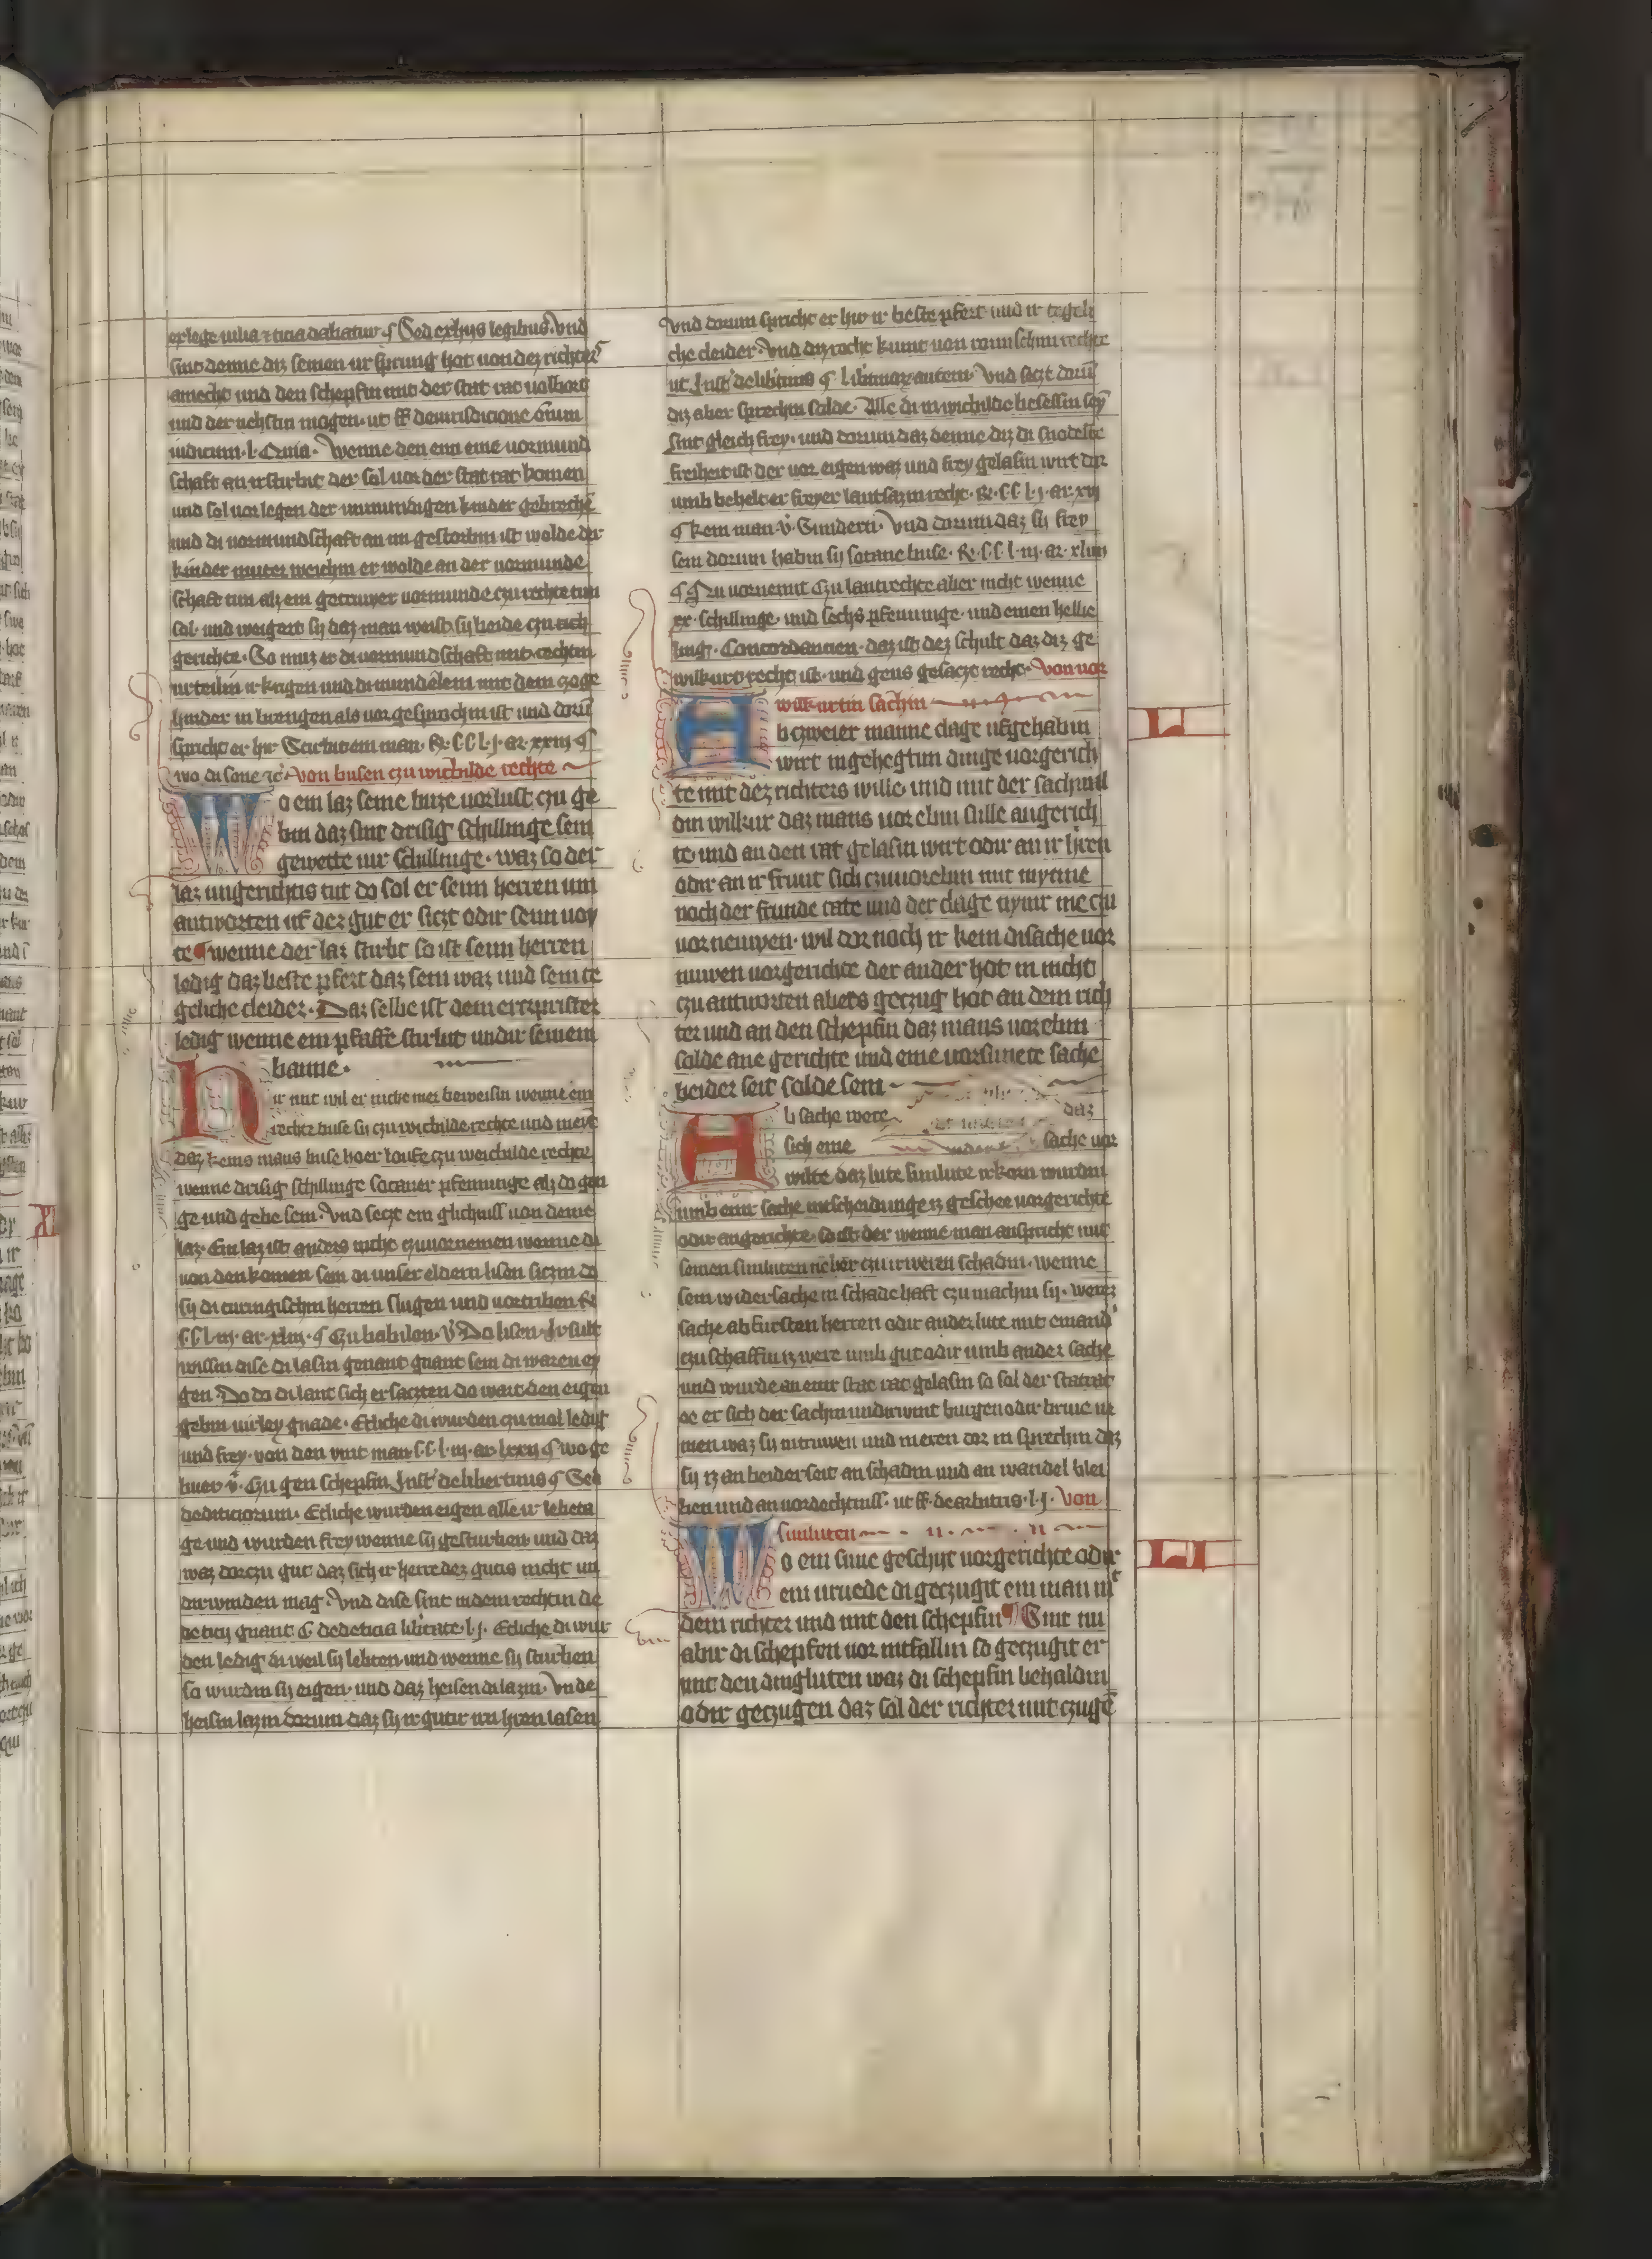 ex lege iulia ⁊ ticia dabatur ¶ Sed ex hijs legibus. Vnd
sint denne diz seinen ursprung hot uon dez richters
amecht und den schepfin mit der stat rat uolbort
und der nehstin mogen. ut ff de iurisdicione oīum
iudicum. l. Quia. Wenne den enn eine uormund
schaft an irstirbit der sal uor der stat rat komen
und sol uor legen der unmundigen kinder gebrechē
und di uormundschaft an im gestorbin ist wolde der
kinder muter weichin er wolde an der uormunde
schaft tun alz ein getruwer uormunde czu rechte tun
sal. und weigert sy daz man weist sy beide czu
gerichte. So muz er di uormundschaft mit rechtin
urteilin irkrigen und di mundelein mit dem
hinder in brengen als uor gesprochin ist und dorū
spricht er hir Stirbit ein man. R. CC l. j. ar. xxiij ¶
wo di sone ꝛc̄. Von busen czu wichilde rechte
Wo ein laz seine buze uorlust czu ge
bin daz sint drisig schillinge sein
gewette uir schillinge. waz so der
laz ungerichtis tut do sol er seim herren um
antworten uf dez gut er siczt odir seim uoy
te ¶ wenne der laz stirbt so ist seim herren
ledig daz beste pfert daz sein waz und sein te
geliche cleider. Daz selbe ist dem erczprister
ledig wenne ein pfaffe stirbit undir seinem
banne.
Hir mit wil er nicht mer beweisin wenne ein
rechte buse sy czu wichilde rechte und meint
daz keins mans buse hoer loufe czu weichilde rechte
wenne drisig schillinge sotaner pfenninge alz do gen
ge und gebe sein. Vnd seczt ein glichniss uon deme
laz. Ein laz ist anders nicht czuuornemen wenne di
uon den komen sein di unser eldern lisen siczin do
sy di turingischin herren slugen und uortriben R
CC l. iij. ar. xliij. ¶ Czu babilon. v̄ Do lisen. Ir sullt
wissin dise di lasin genant sein di waren ey
gen. Do do di lant sich er saczten do wart den eigen
gebin uirley gnade. Etliche di wurden czu mol ledig
und frey. von den vint man CC l. iij. ar. lxxij ¶ wo ge
buer v̄. Czu gen schepfin. Inst̄ de libertinis ¶ Sed
dediticiorum. Etliche wurden eigen alle ir lebeta
ge und wurden frey wenne sy gesturben und daz
waz dorczu gut daz sich ir herre dez gutis nicht un
dirwinden mag. Vnd dise sint in dem rechtin de
deticij gnant C. de dedeticia libertate. l. j. Etliche di wur
den ledig di weil sy lebten und wenne sy sturben
so wurdin sy eigen. und daz heisen di lazin. Vnde
heisin lazin dorum daz sy ir gutir irn hren lasen
Vnd dorum spricht er hir ir beste pfert und ir tegeli
che cleider. Vnd diz recht kumt uon romischim rechte
ut Inst̄ de libtinis ¶ libtinor autem. Vnd seczt dorū
diz aber sprechin solde. Alle di in wichilde besessin sey
sint gleich frey. und dorum daz denne diz di snodeste
freiheit ist der uor eigen waz und frey gelasin wirt dor
umb behelt er freyer lantsazin recht. R. CC l. j. ar. xvj
¶ kein man v̄. Sundern. Vnd dorum daz sy frey
sein dorum habin sy sotane buse. R. CC l. iij. ar. xliiij
¶ Czu uornemit czu lantrechte aber nicht wenne
xx. schillinge. und sechs pfenninge. und einen hellir
ling. Concordancien. daz ist dez schult daz diz ge
wilkurt recht ist. und gens gesaczt recht. Von uor
wilkurtin sachin
Ab czweier manne clage ufgehabin
wirt in gehegtim dinge uorgerich
te mit dez richters wille und mit der sachwal
din wilkur daz mans uor ebin sulle angerich
te. und an den rat gelasin wirt odir an ir hren
odir an ir frunt sich czuuorebin mit mynne
noch der frunde rate und der clage nymir me czu
uor neuwen. wil dor noch ir kein di sache uor
nuwen uorgerichte der ander hot im nicht
czu antworten ab ers geczug hot an dem rich
ter und an den schepfin daz mans uor ebin
solde ane gerichte und eine uorsunete sache
beider seit solde sein
Ab sache were daz
sich eine sache uor
wilte daz lute sunlute irkorn wurdin
umb einr sache intscheidunge iz geschee uorgerichte
odir angerichte. so ist der wenne man anspricht mit
seinen sunluten neher czu irweren schadin. wenne
sein widersache in schadehaft czu machin sy. werez
sache ab fursten herren odir ander lute mit einand
czu schaffin iz were umb gut odir umb ander sache
und wurde an einr stat rat gelasin so sal der statrat
ee er sich der sachin undirwint burgen odir briue ne
men waz sy intruwen und ineren dor in sprechin daz
sy iz an beider seit an schadin und an wandel blei
ben und an uordechtniss. ut ff. de arbitris. l. j. Von
sunluten
Wo ein sune geschyt uorgerichte odir
ein uruede di geczugit ein man mt
dem richter und mit den schepfin ¶ Sint nu
abir di schepfen uor intfallin so geczugit er
mit den dingluten waz di schepfin behaldin
odir geczugen daz sol der richter mit czugē
L
LI